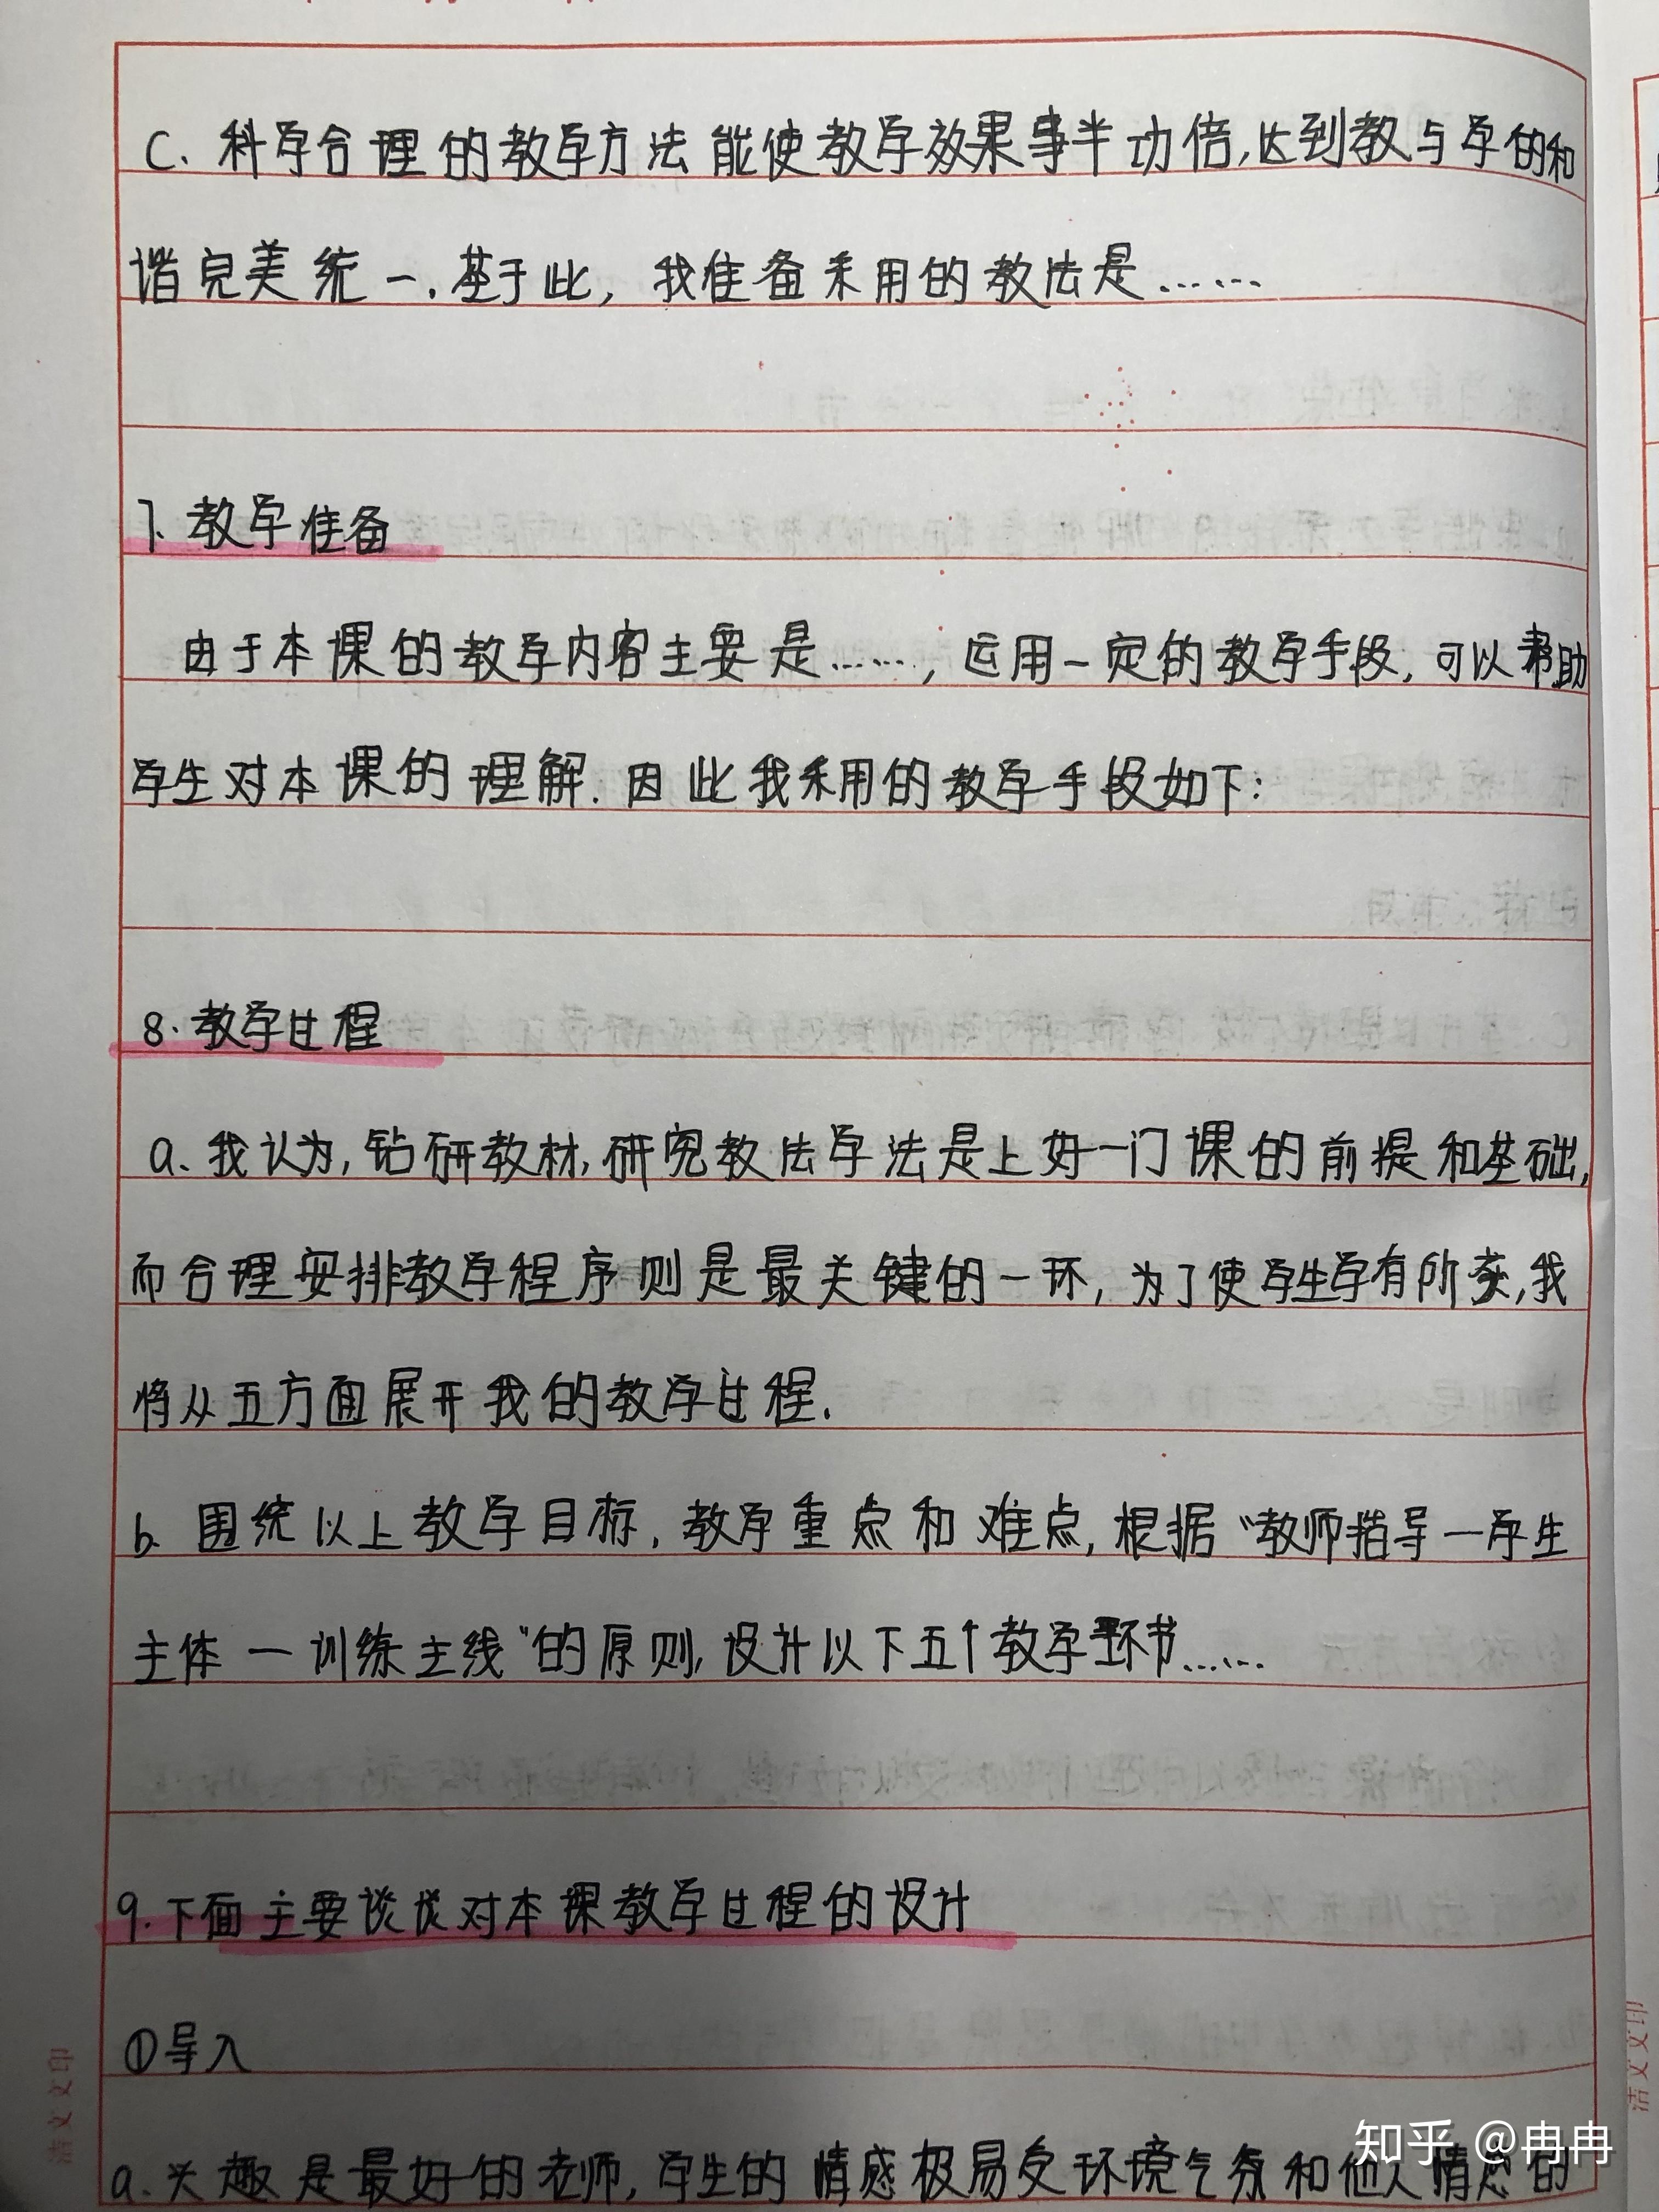 c. 科学合理的教学方法能使教学效果事半功倍,达到教与学的和
谐完美统一.基于此, 我准备采用的教法是……
7. 教学准备
由于本课的教学内容主要是……, 运用一定的教学手段, 可以帮助
学生对本课的理解. 因此我采用的教学手段如下:
8. 教学过程
a. 我认为, 钻研教材, 研究教法学法是上好一门课的前提和基础,
而合理安排教学程序则是最关键的一环, 为了使学生学有所获, 我
将从五方面展开我的教学过程.
b. 围绕以上教学目标, 教学重点和难点, 根据“教师指导一学生
主体一训练主线”的原则, 设计以下五个教学环节……
9. 下面主要谈谈对本课教学过程的设计
①导入
a. 兴趣是最好的老师, 学生的情感极易受环境气氛和他人情感的
洁文文印
洁文文印
知乎 @冉冉